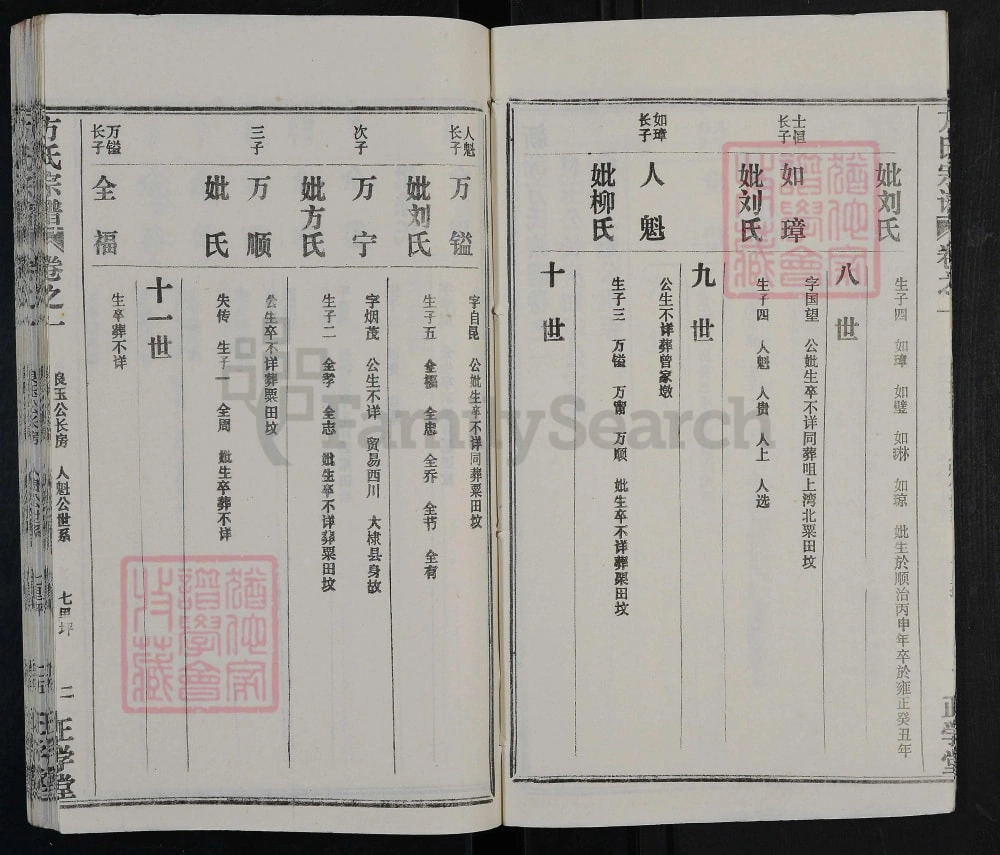 妣刘氏
生子四 如璋 如璧 如琳 如琼 妣生於顺治丙申年卒於雍正癸丑年
八世
士恒长子
如璋
字国望 公妣生卒不详同葬咀上湾北粟田坟
妣刘氏
生子四 人魁 人贵 人上 人选
九世
如璋长子
人魁
公生不详葬曾家墩
妣柳氏
生子三 万镒 万甯 万顺 妣生卒不详葬粟田坟
十世
人魁长子
万镒
字自昆 公妣生卒不详同葬粟田坟
妣刘氏
生子五 全福 全忠 全乔 全节 全有
次子
万宁
字烟茂 公生不详 贸易西川 大棣县身故
妣方氏
生子二 全孝 全志 妣生卒不详葬粟田坟
三子
万顺
公生卒不详葬粟田坟
妣氏
失传 生子一 全周 妣生卒葬不详
十一世
万镒长子
全福
生卒葬不详
方氏宗谱 卷之一 良玉公长房 人魁公世系 七里坪 二 正学堂
正学堂
猶他家譜學會特藏
猶他家譜學會特藏
FamilySearch